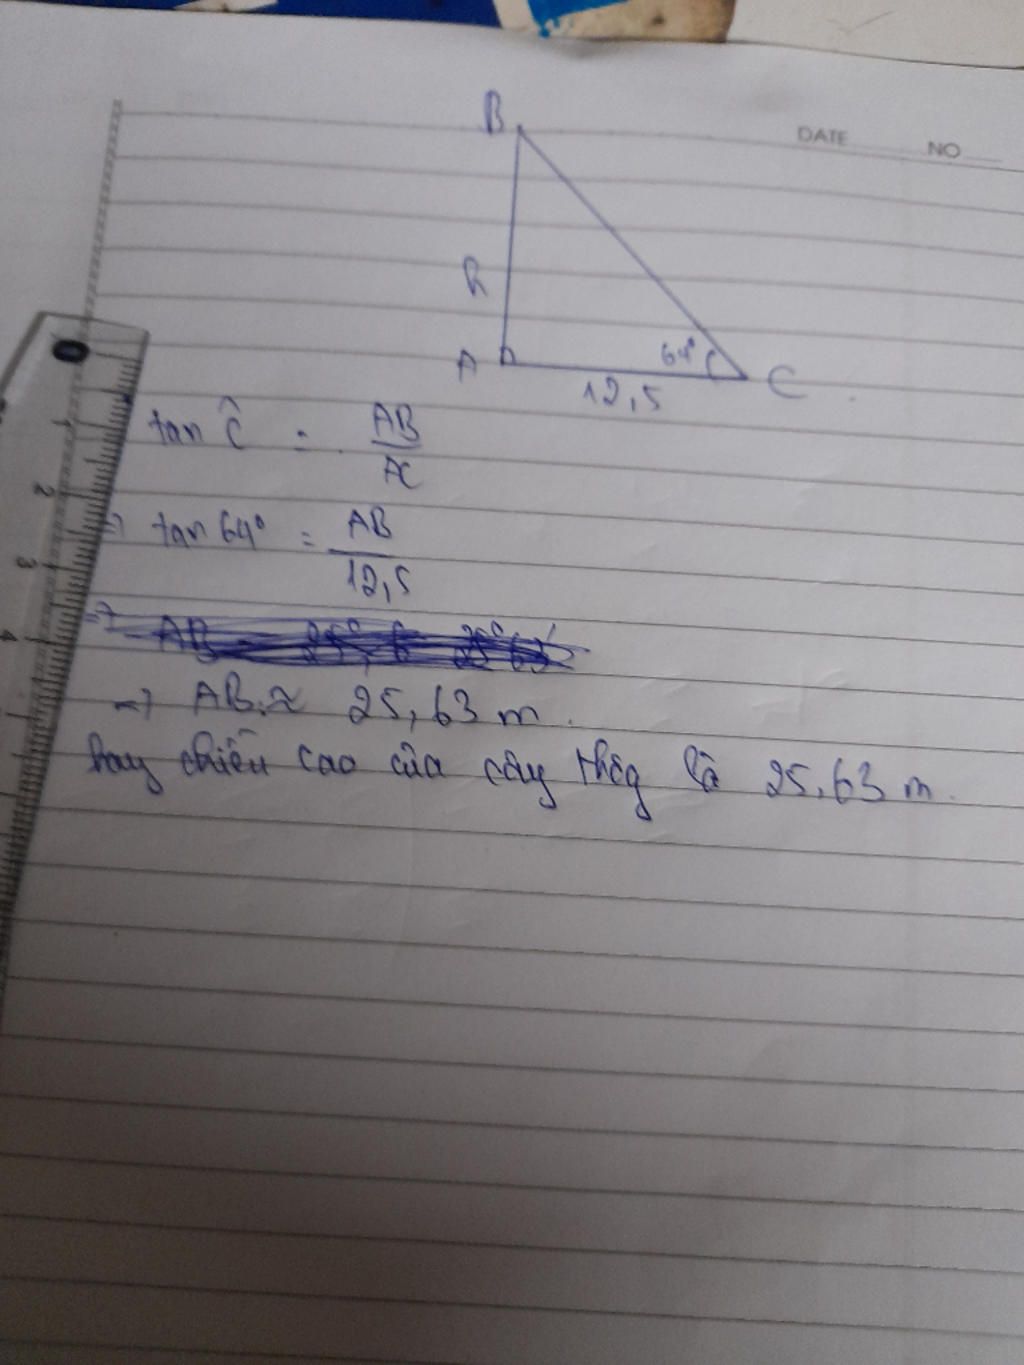 DATE NO
B
h
A
64°
C
12,5
tan Ĉ = AB/AC
=> tan 64° = AB/12,5
=> AB ≈ 25,63 m.
hay chiều cao của cây thôg là 25,63 m.
0
1
2
3
4